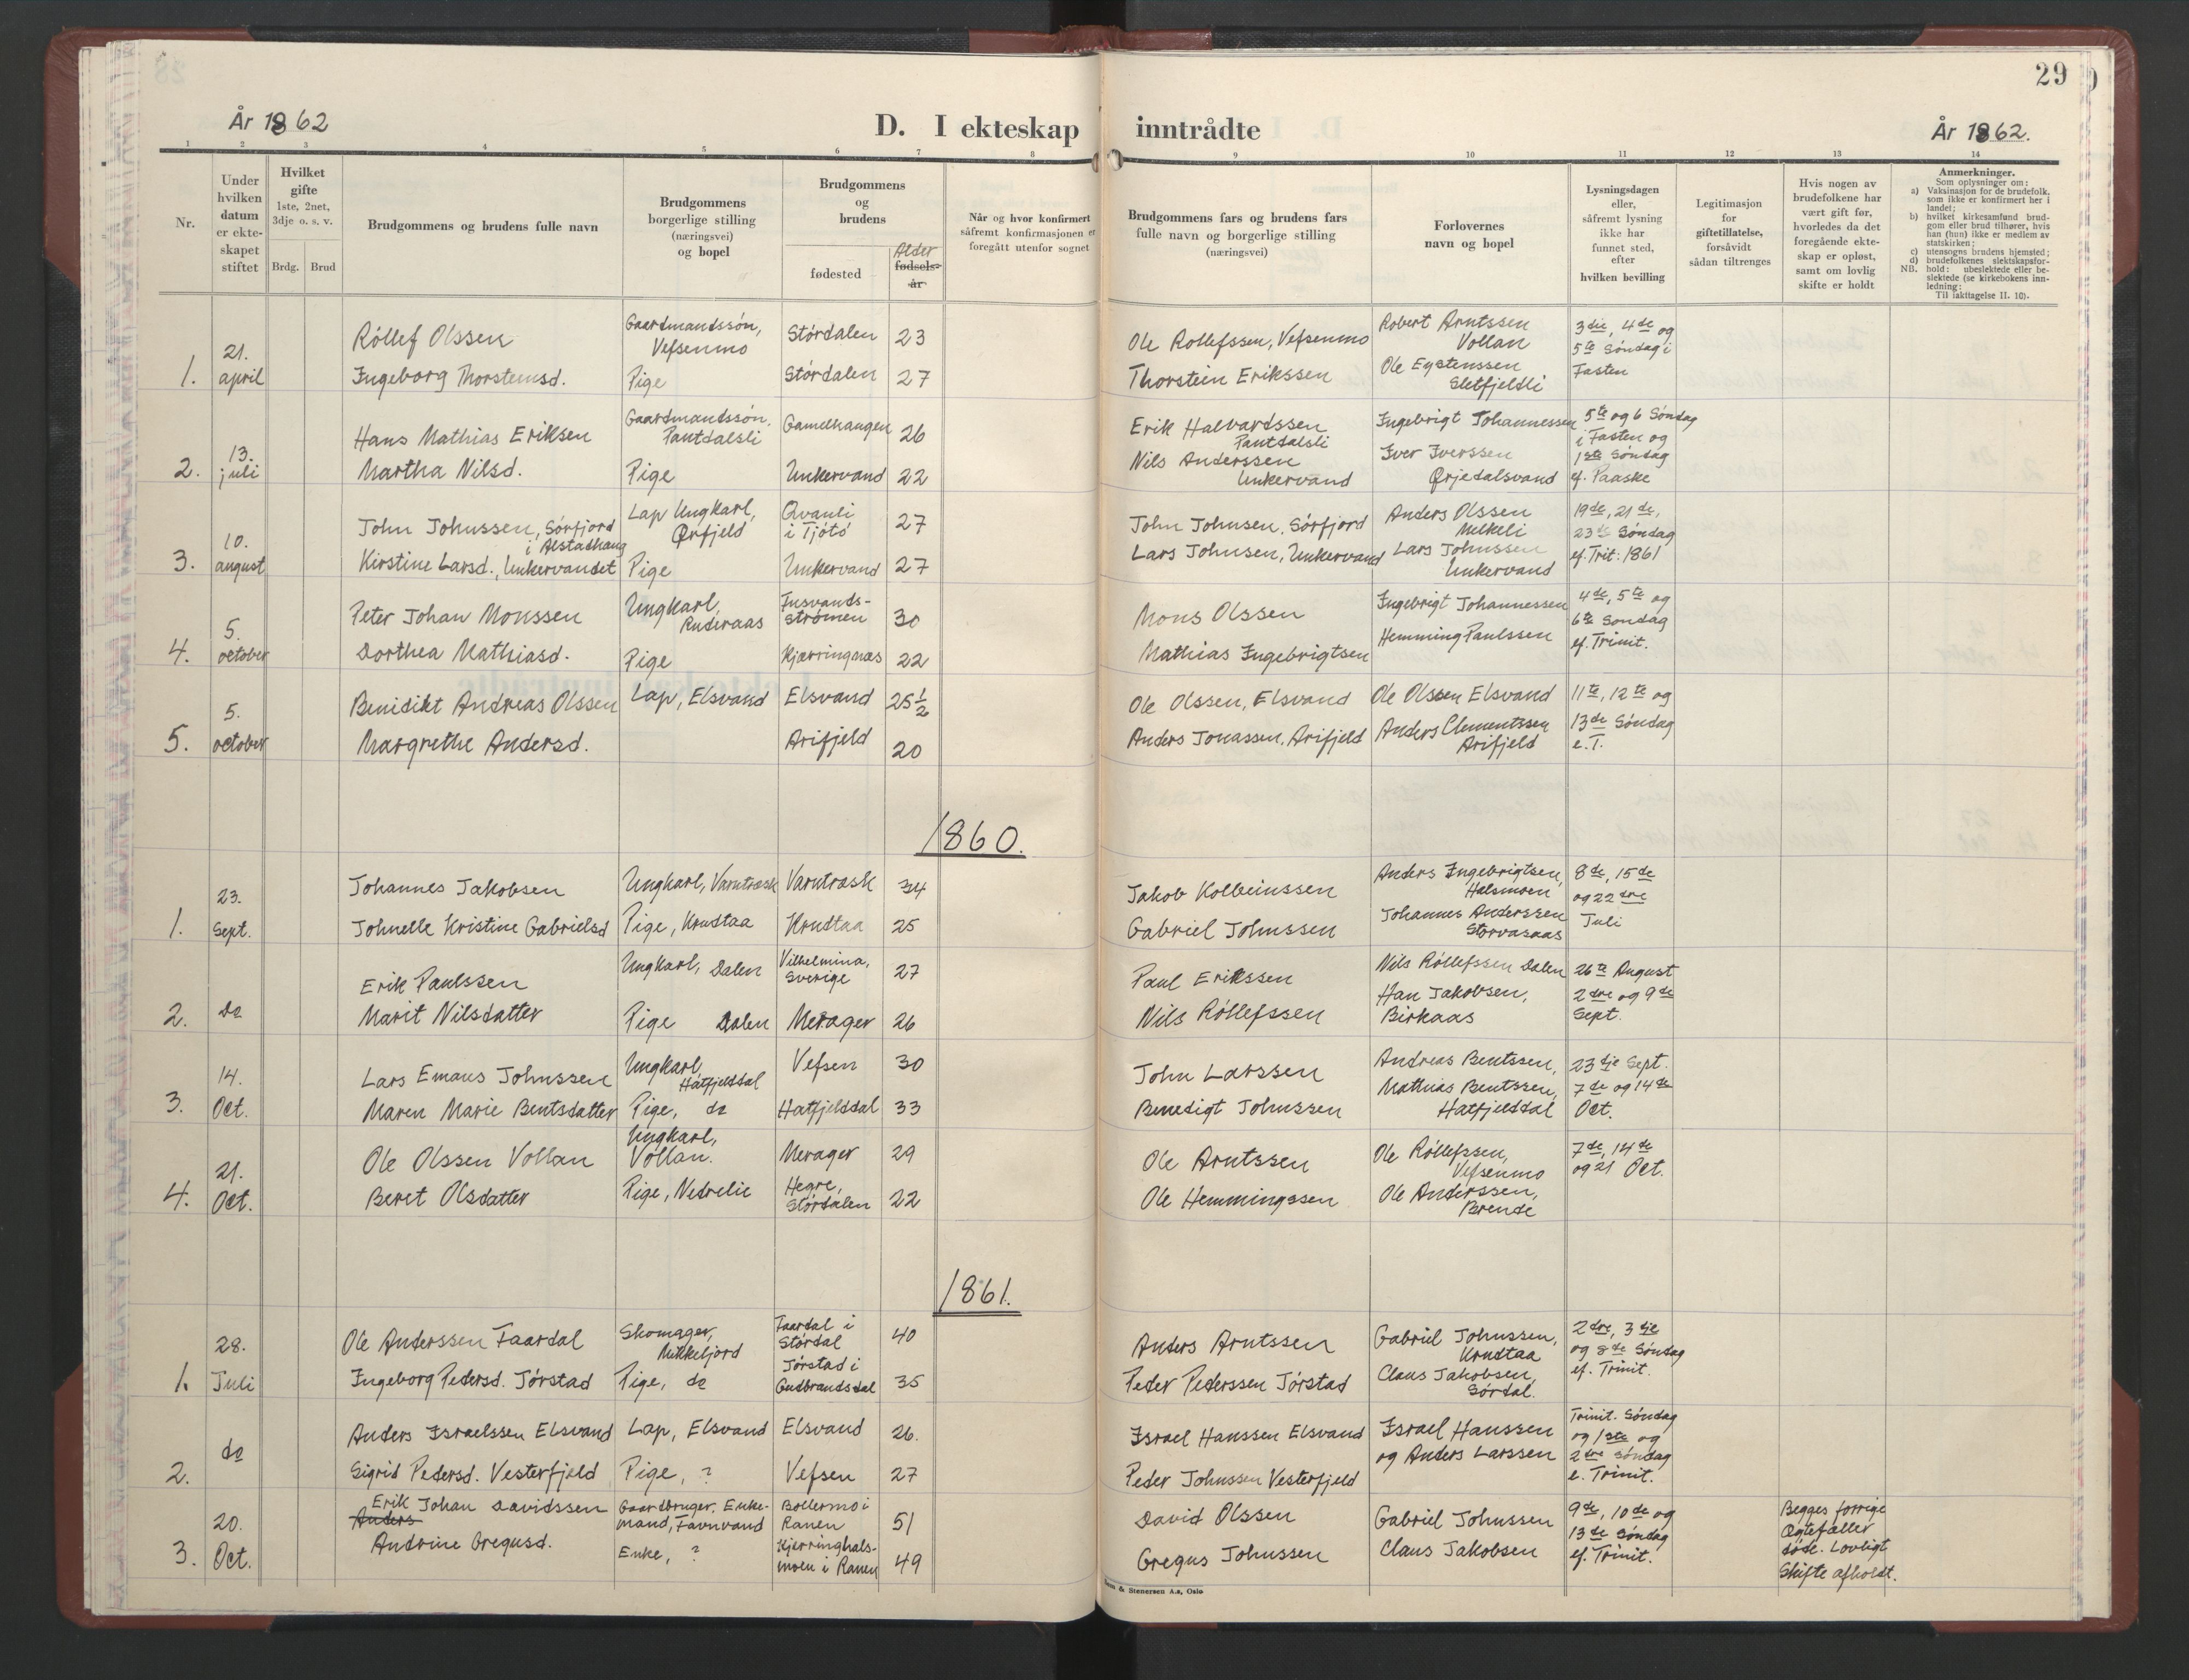 29
År 1862
D. I ekteskap inntrådte
År 1862.
1 2 3 4 5 6 7 8 9 10 11 12 13 14
Nr.
Under hvilken datum er ekte- skapet stiftet
Hvilket gifte 1ste, 2net, 3dje o. s. v.
Brdg. Brud
Brudgommens og brudens fulle navn
Brudgommens borgerlige stilling (næringsvei) og bopel
Brudgommens og brudens
fødested
Alder
fødsels- år
Når og hvor konfirmert såfremt konfirmasjonen er foregått utenfor sognet
Brudgommens fars og brudens fars fulle navn og borgerlige stilling (næringsvei)
Forlovernes navn og bopel
Lysningsdagen eller, såfremt lysning ikke har funnet sted, efter hvilken bevilling
Legitimasjon for giftetillatelse, forsåvidt sådan tiltrenges
Hvis nogen av brudefolkene har vært gift før, hvorledes da det foregående ekte- skap er opløst, samt om lovlig skifte er holdt
Anmerkninger.
Som oplysninger om:
a) Vaksinasjon for de brudefolk, som ikke er konfirmert her i landet;
b) hvilket kirkesamfund brud- gom eller brud tilhører, hvis han (hun) ikke er medlem av statskirken;
c) utensogns brudens hjemsted;
d) brudefolkenes slektskapsfor- hold: ubeslektede eller be- slektede (se kirkebokens inn- ledning:
NB.
Til iakttagelse II. 10).
1. 21. april
Röllef Olssen Gaardmandssön, Vefsenmo Stördalen 23 Ole Rollefssen, Vefsenmo Robert Arntssen Vollan 3die, 4de og 5te Söndag i Fasten
Ingeborg Thorsteinsd. Pige Stördalen 27 Thorstein Erikssen Ole Eystenssen Sletfjeldli
2. 13. juli
Hans Mathias Eriksen Gaardmandssön, Pantdalsli Gamelhaugen 26 Erik Halvardssen Pantdalsli Ingebrigt Johannessen 5te og 6 Söndag i Fasten og 1ste Söndag ef. Paaske
Martha Nilsd. Pige Unkervand 22 Nils Anderssen Unkervand Iver Iverssen Ørjedalsvand
3. 10. august
John Johnssen, Sörfjord i Alstadhaug Lap Ungkarl, Ørfjeld Qvanli i Tjötö 27 John Johnsen, Sörfjord Anders Olssen Melkeli 19de, 21de, 23de Söndag ef. Trit: 1861
Kirstine Larsd., Unkervandet Pige Unkervand 27 Lars Johnsen, Unkervand Lars Johnssen Unkervand
4. 5. october
Peter Johan Monssen Ungkarl, Ruderaas Fusvands- strömen 30 Mons Olssen Ingebrigt Johannessen 4de, 5te og 6te Söndag ef. Trinit.
Dorthea Mathiasd. Pige Kjærringnæs 22 Mathias Ingebrigtsen Hemming Paulssen
5. 5. october
Benidikt Andreas Olssen Lap, Elsvand Elsvand 25 1/2 Ole Olssen, Elsvand Ole Olssen Elsvand 11te, 12te og 13de Söndag e. T.
Margrethe Andersd. Arifjeld 20 Anders Jonassen, Arifjeld Anders Clementssen Arifjeld
1860.
1. 23. Sept.
Johannes Jakobsen Ungkarl, Varntræsk Varntrask 34 Jakob Kolbeinssen Anders Ingebrigtsen, Halsmoen 8de, 15de og 22dre Juli
Johnelle Kristine Gabrielsd Pige, Krudtaa Krudtaa 25 Gabriel Johnssen Johannes Anderssen Storvasaas
2. Do
Erik Paulssen Ungkarl, Dalen Vilhelmina, Sverige 27 Paul Erikssen Nils Röllefssen Dalen 26te August 2dre og 9de Sept.
Marit Nilsdatter Pige Dalen Merager 26 Nils Röllefssen Han Jakobsen, Birkaas
3. 14. Oct.
Lars Emaus Johnssen Ungkarl, Hatfjelddal Vefsen 30 John Larssen Andreas Bentssen, 23dje Sept. 7de og 14de Oct.
Maren Marie Bentsdatter Pige, do Hatfjelddal 33 Benedigt Johnssen Mathias Bentssen, Hatfjelddal
4. 21. Oct.
Ole Olssen Vollan Ungkarl, Vollan. Merager 29 Ole Arntssen Ole Röllefssen, Vefsenmo 7de, 14de og 21 Oct.
Beret Olsdatter Pige, Nedrelie Hegre, Stördalen 22 Ole Hemmingssen Ole Anderssen, Brende
1861.
1. 28. Juli
Ole Anderssen Faardal Skomager, Mikkeljord Faardal i Stördal 40 Anders Arntssen Gabriel Johnssen, Krudtaa 2dre, 3die og 8de Söndag ef. Trinit.
Ingeborg Pedersd. Jörstad Pige, do Jörstad i Gudbrandsdal 35 Peder Pederssen Jörstad Claus Jakobsen, Sördal.
2. do
Anders Israelssen Elsvand Lap, Elsvand Elsvand 26. Israel Hanssen Elsvand Israel Hanssen Trinit. Söndag og 1ste og 2dre Söndag e. Trinit.
Sigrid Pedersd. Vesterfjeld Pige, ? Vefsen 27 Peder Johnssen Vesterfjeld og Anders Larssen
3. 20. Oct.
Anders Erik Johan Davidssen Gaardbruger, Enke- mand, Favnvand Bollermo i Ranen 51 David Olssen Gabriel Johnssen 9de, 10de og 13de Söndag ef. Trinit. Begges forrige Ægtefæller döde. Lovligt Skifte afholdt.
Andrine Gregusd. Enke, ? Kjerringhals- moen i Ranen 49 Gregus Johnssen Claus Jakobsen
& Stenersen A.s, Oslo